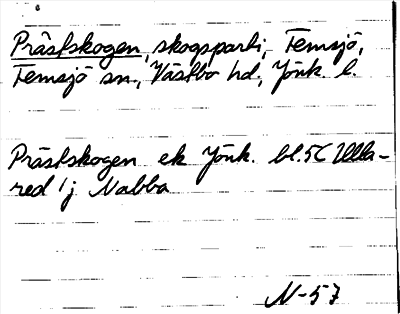 Prästskogen, skogsparti, Femsjö,
Femsjö sn., Västbo hd., Jönk. l.
Prästskogen ek Jönk. bl. 5C Ulla-
red 1j Nabba
N-57